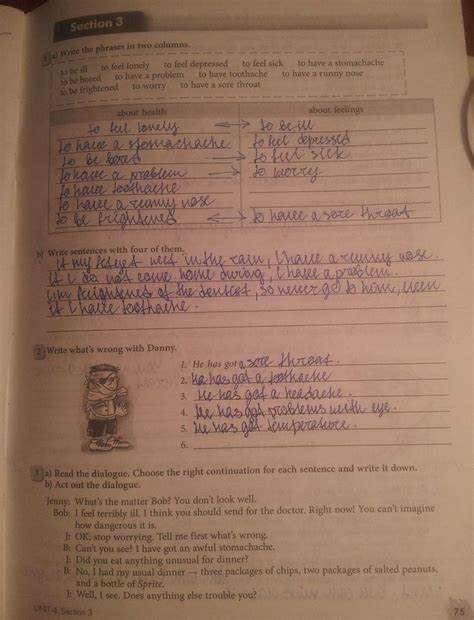 Section 3
1 a) Write the phrases in two columns.
to be ill to feel lonely to feel depressed to feel sick to have a stomachache
to be bored to have a problem to have toothache to have a runny nose
to be frightened to worry to have a sore throat
about health about feelings
to feel lonely ↔ to be ill
to have a stomachache to feel depressed
to be bored → to feel sick
to have a problem → to worry
to have toothache
to have a runny nose
to be frightened ↔ to have a sore throat
b) Write sentences with four of them.
If my feet get wet in the rain, I have a runny nose.
If I do not come home during, I have a problem.
I'm frightened of the dentist, so never go to him, even
if I have toothache.
2 Write what's wrong with Danny.
1. He has got a sore throat.
2. He has got a toothache
3. He has got a headache.
4. He has got problems with eye.
5. He has got temperature.
6.
3 a) Read the dialogue. Choose the right continuation for each sentence and write it down.
b) Act out the dialogue.
Jenny: What's the matter Bob? You don't look well.
Bob: I feel terribly ill. I think you should send for the doctor. Right now! You can't imagine
how dangerous it is.
J: OK, stop worrying. Tell me first what's wrong.
B: Can't you see? I have got an awful stomachache.
J: Did you eat anything unusual for dinner?
B: No, I had my usual dinner → three packages of chips, two packages of salted peanuts,
and a bottle of Sprite.
J: Well, I see. Does anything else trouble you?
UNIT 4 Section 3
75